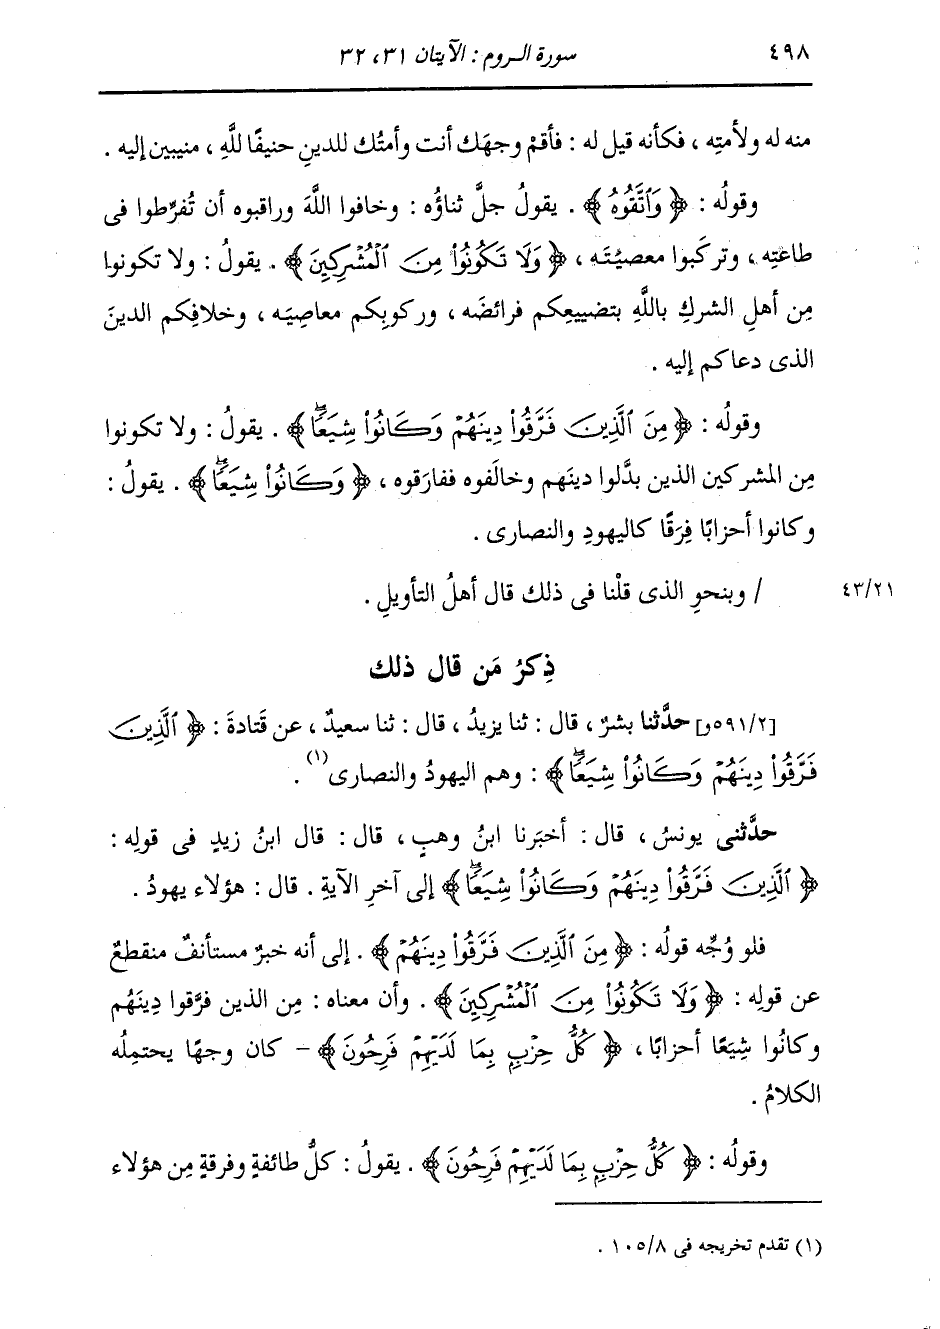 ٤٩٨ سورة الروم : الآيتان ٣١، ٣٢
منه له ولأمتِه ، فكأنه قيل له : فأقمْ وجهَك أنت وأمتُك للدينِ حنيفًا للَّهِ ، منيبين إليه .
وقولُه : ﴿ وَٱتَّقُوهُ ﴾ . يقولُ جلَّ ثناؤُه : وخافوا اللَّهَ وراقبوه أن تُفرِّطوا فى
طاعتِه ، وتركَبوا معصيتَه ، ﴿ وَلَا تَكُونُواْ مِنَ ٱلْمُشْرِكِينَ ﴾ . يقولُ : ولا تكونوا
مِن أهلِ الشركِ باللَّهِ بتضييعِكم فرائضَه ، وركوبِكم معاصِيَه ، وخلافِكم الدينَ
الذى دعاكم إليه .
وقولُه : ﴿ مِنَ ٱلَّذِينَ فَرَّقُواْ دِينَهُمْ وَكَانُواْ شِيَعًا ۖ ﴾ . يقولُ : ولا تكونوا
مِن المشركين الذين بدَّلوا دينَهم وخالَفوه ففارَقوه ، ﴿ وَكَانُواْ شِيَعًا ۖ ﴾ . يقولُ :
وكانوا أحزابًا فِرَقًا كاليهودِ والنصارى .
/ وبنحوِ الذى قلْنا فى ذلك قال أهلُ التأويلِ . ٤٣/٢١
ذِكرُ مَن قال ذلك
[٥٩١/٢و] حدَّثنا بشرٌ ، قال : ثنا يزيدُ ، قال : ثنا سعيدٌ ، عن قَتادةَ : ﴿ ٱلَّذِينَ
فَرَّقُواْ دِينَهُمْ وَكَانُواْ شِيَعًا ۖ ﴾ : وهم اليهودُ والنصارى(١) .
حدَّثنى يونسُ ، قال : أخبَرنا ابنُ وهبٍ ، قال : قال ابنُ زيدٍ فى قولِه :
﴿ ٱلَّذِينَ فَرَّقُواْ دِينَهُمْ وَكَانُواْ شِيَعًا ۖ ﴾ إلى آخرِ الآيةِ . قال : هؤلاء يهودُ .
فلو وُجِّه قولُه : ﴿ مِنَ ٱلَّذِينَ فَرَّقُواْ دِينَهُمْ ﴾ . إلى أنه خبرٌ مستأنفٌ منقطعٌ
عن قولِه : ﴿ وَلَا تَكُونُواْ مِنَ ٱلْمُشْرِكِينَ ﴾ . وأن معناه : مِن الذين فرَّقوا دِينَهُم
وكانُوا شِيَعًا أحزابًا ، ﴿ كُلُّ حِزْبٍ بِمَا لَدَيْهِمْ فَرِحُونَ ﴾ – كان وجهًا يحتمِلُه
الكلامُ .
وقولُه : ﴿ كُلُّ حِزْبٍ بِمَا لَدَيْهِمْ فَرِحُونَ ﴾ . يقولُ : كلُّ طائفةٍ وفرقةٍ مِن هؤلاء
(١) تقدم تخريجه فى ١٠٥/٨ .